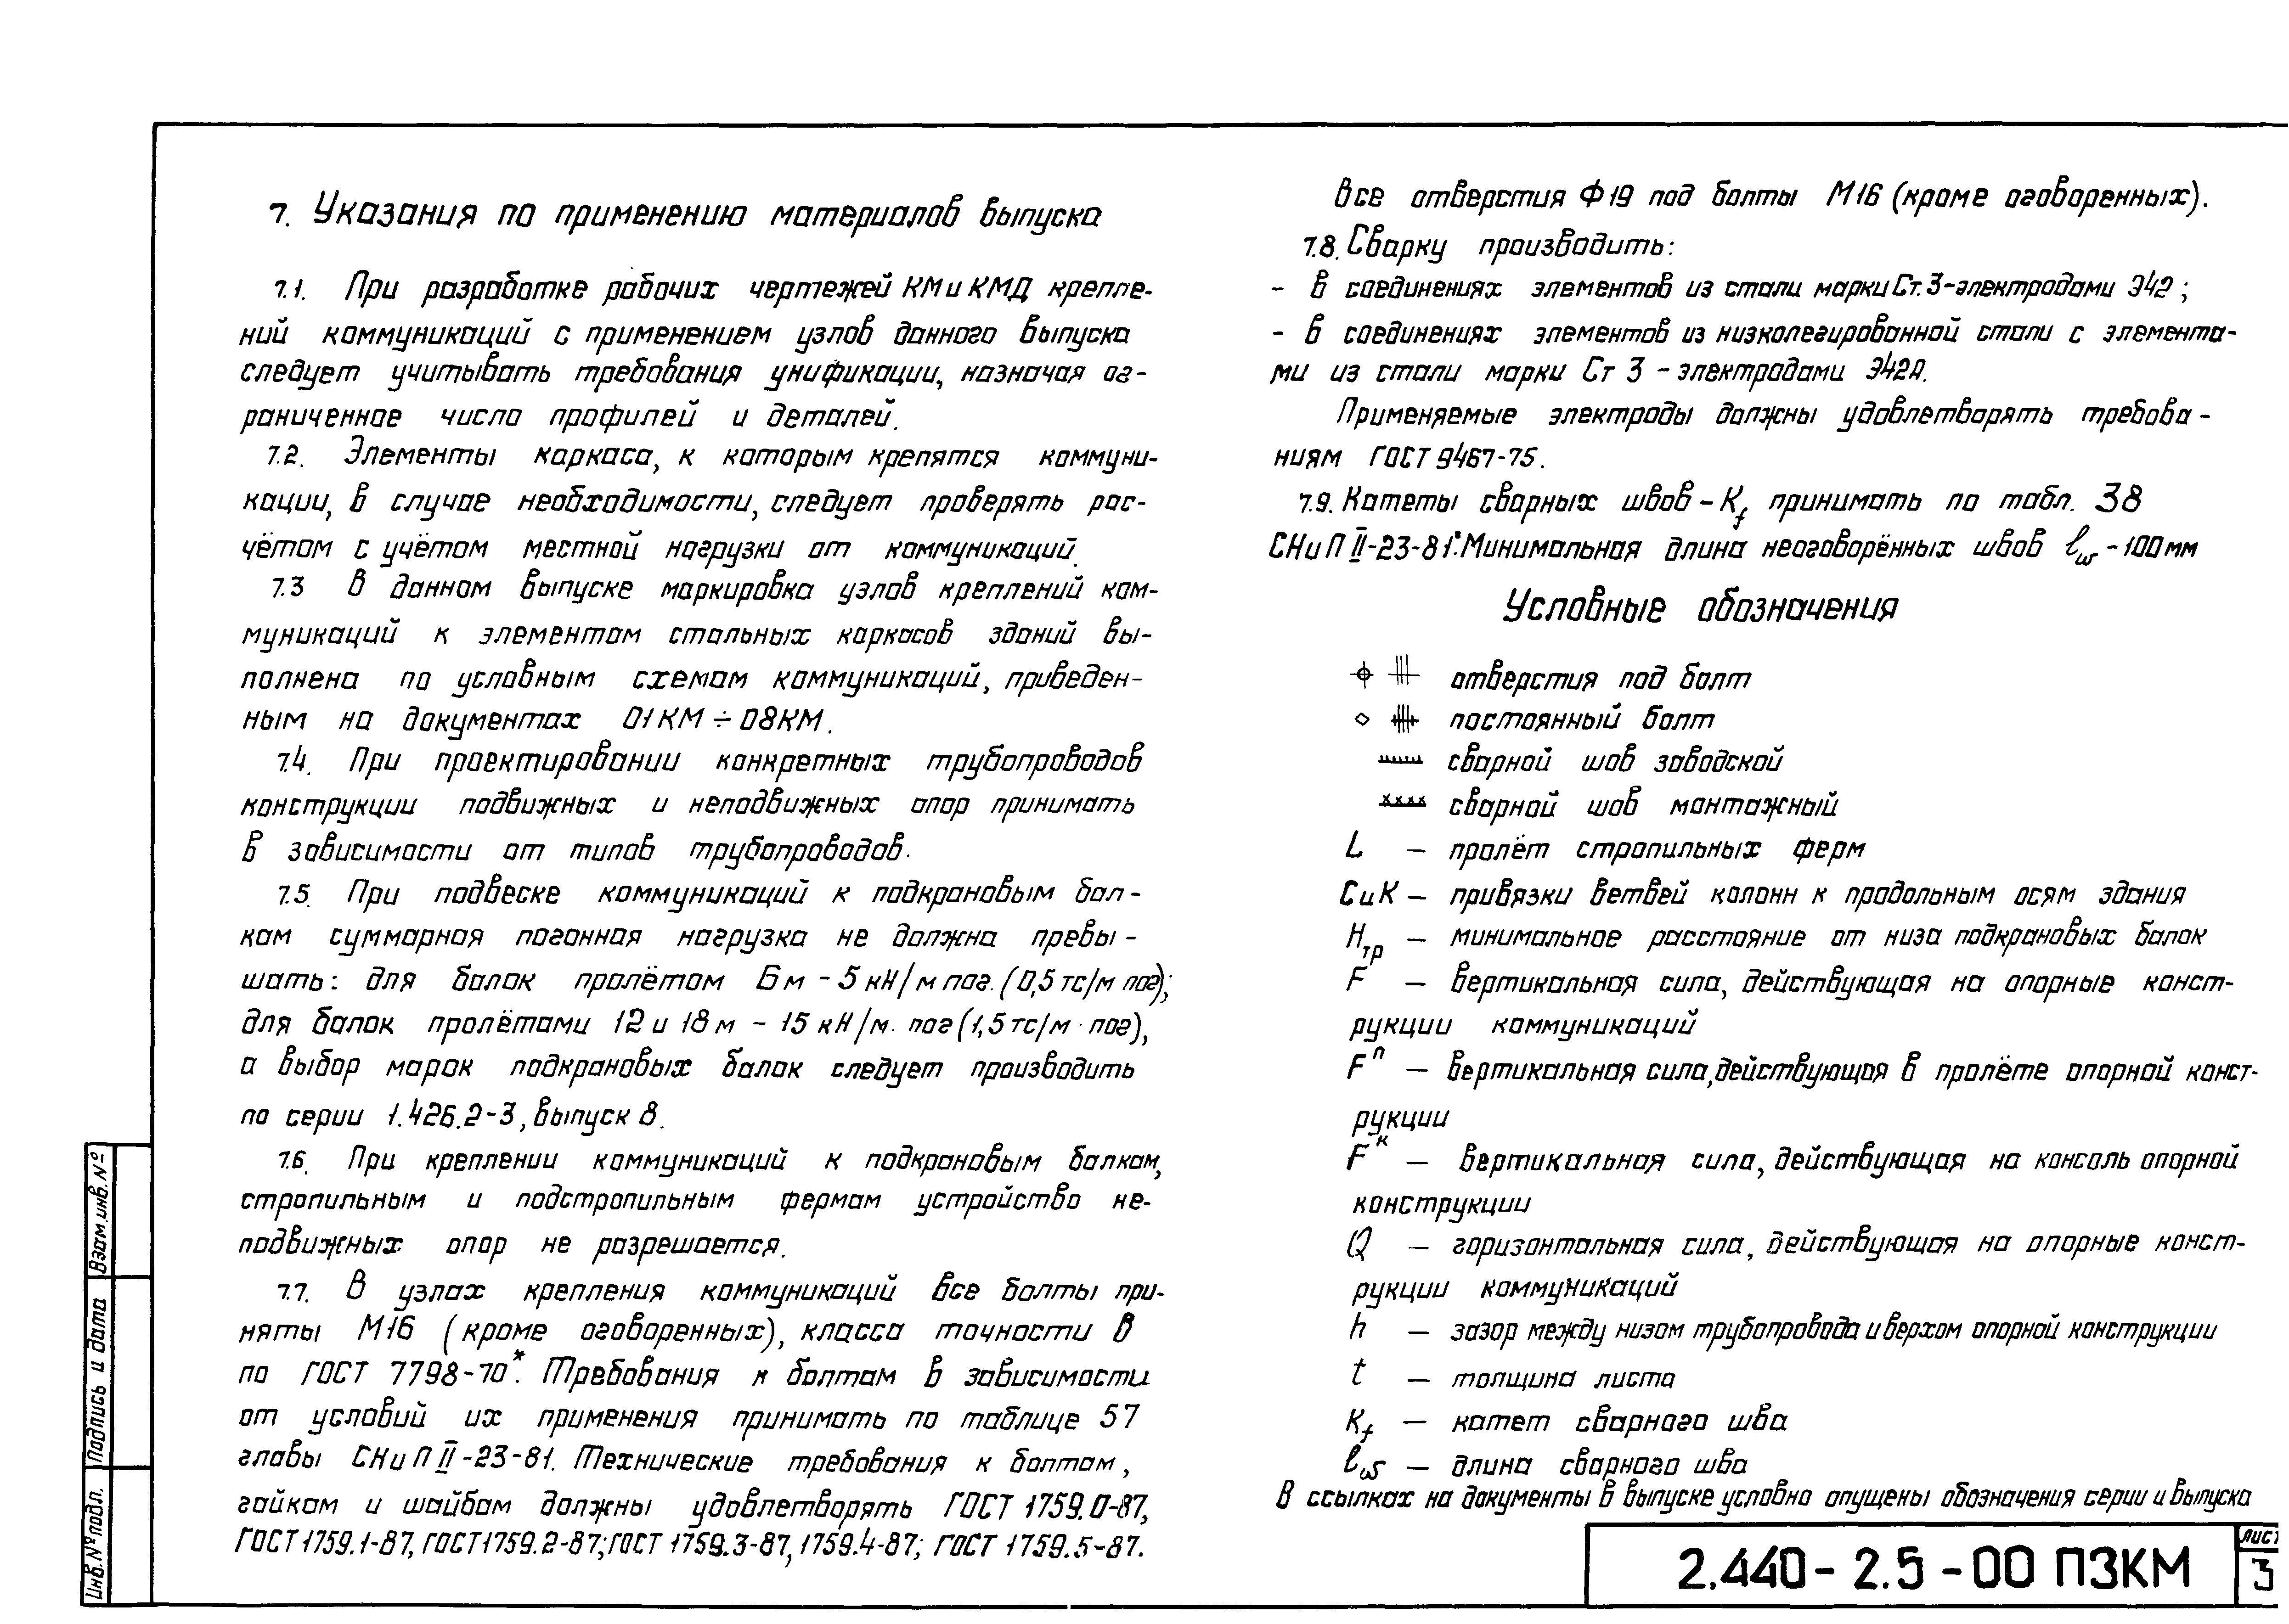 7. Указания по применению материалов выпуска
7.1. При разработке рабочих чертежей КМ и КМД крепле-
ний коммуникаций с применением узлов данного выпуска
следует учитывать требования унификации, назначая ог-
раниченное число профилей и деталей.
7.2. Элементы каркаса, к которым крепятся коммуни-
кации, в случае необходимости, следует проверять рас-
чётом с учётом местной нагрузки от коммуникаций.
7.3 В данном выпуске маркировка узлов креплений ком-
муникаций к элементам стальных каркасов зданий вы-
полнена по условным схемам коммуникаций, приведен-
ным на документах 01КМ ÷ 08КМ.
7.4. При проектировании конкретных трубопроводов
конструкции подвижных и неподвижных опор принимать
в зависимости от типов трубопроводов.
7.5. При подвеске коммуникаций к подкрановым бал-
кам суммарная погонная нагрузка не должна превы-
шать: для балок пролётом 6м - 5 кН/м пог. (0,5 тс/м пог);
для балок пролётами 12 и 18 м - 15 кН/м. пог (1,5 тс/м · пог),
а выбор марок подкрановых балок следует производить
по серии 1.426.2-3, выпуск 8.
7.6. При креплении коммуникаций к подкрановым балкам,
стропильным и подстропильным фермам устройство не-
подвижных опор не разрешается.
7.7. В узлах крепления коммуникаций все болты при-
няты М16 (кроме оговоренных), класса точности В
по ГОСТ 7798-70*. Требования к болтам в зависимости
от условий их применения принимать по таблице 57
главы СНиП II-23-81. Технические требования к болтам,
гайкам и шайбам должны удовлетворять ГОСТ 1759.0-87,
ГОСТ 1759.1-87, ГОСТ 1759.2-87; ГОСТ 1759.3-87, 1759.4-87; ГОСТ 1759.5-87.
Все отверстия Ф19 под болты М16 (кроме оговоренных).
7.8. Сварку производить:
- в соединениях элементов из стали марки Ст.3-электродами Э42;
- в соединениях элементов из низколегированной стали с элемента-
ми из стали марки Ст 3 - электродами Э42А.
Применяемые электроды должны удовлетворять требова-
ниям ГОСТ 9467-75.
7.9. Катеты сварных швов - Kf принимать по табл. 38
СНиП II-23-81*. Минимальная длина неоговорённых швов lω - 100мм
Условные обозначения
отверстия под болт
постоянный болт
сварной шов заводской
сварной шов монтажный
L — пролёт стропильных ферм
С и К — привязки ветвей колонн к продольным осям здания
Hтр — минимальное расстояние от низа подкрановых балок
F — вертикальная сила, действующая на опорные конст-
рукции коммуникаций
Fп — вертикальная сила, действующая в пролёте опорной конст-
рукции
Fк — вертикальная сила, действующая на консоль опорной
конструкции
Q — горизонтальная сила, действующая на опорные конст-
рукции коммуникаций
h — зазор между низом трубопровода и верхом опорной конструкции
t — толщина листа
Kf — катет сварного шва
lω — длина сварного шва
В ссылках на документы в выпуске условно опущены обозначения серии и выпуска
2.440-2.5-00 ПЗКМ
лист
3
Взам. инв. №
Подпись и дата
Инв. № подл.